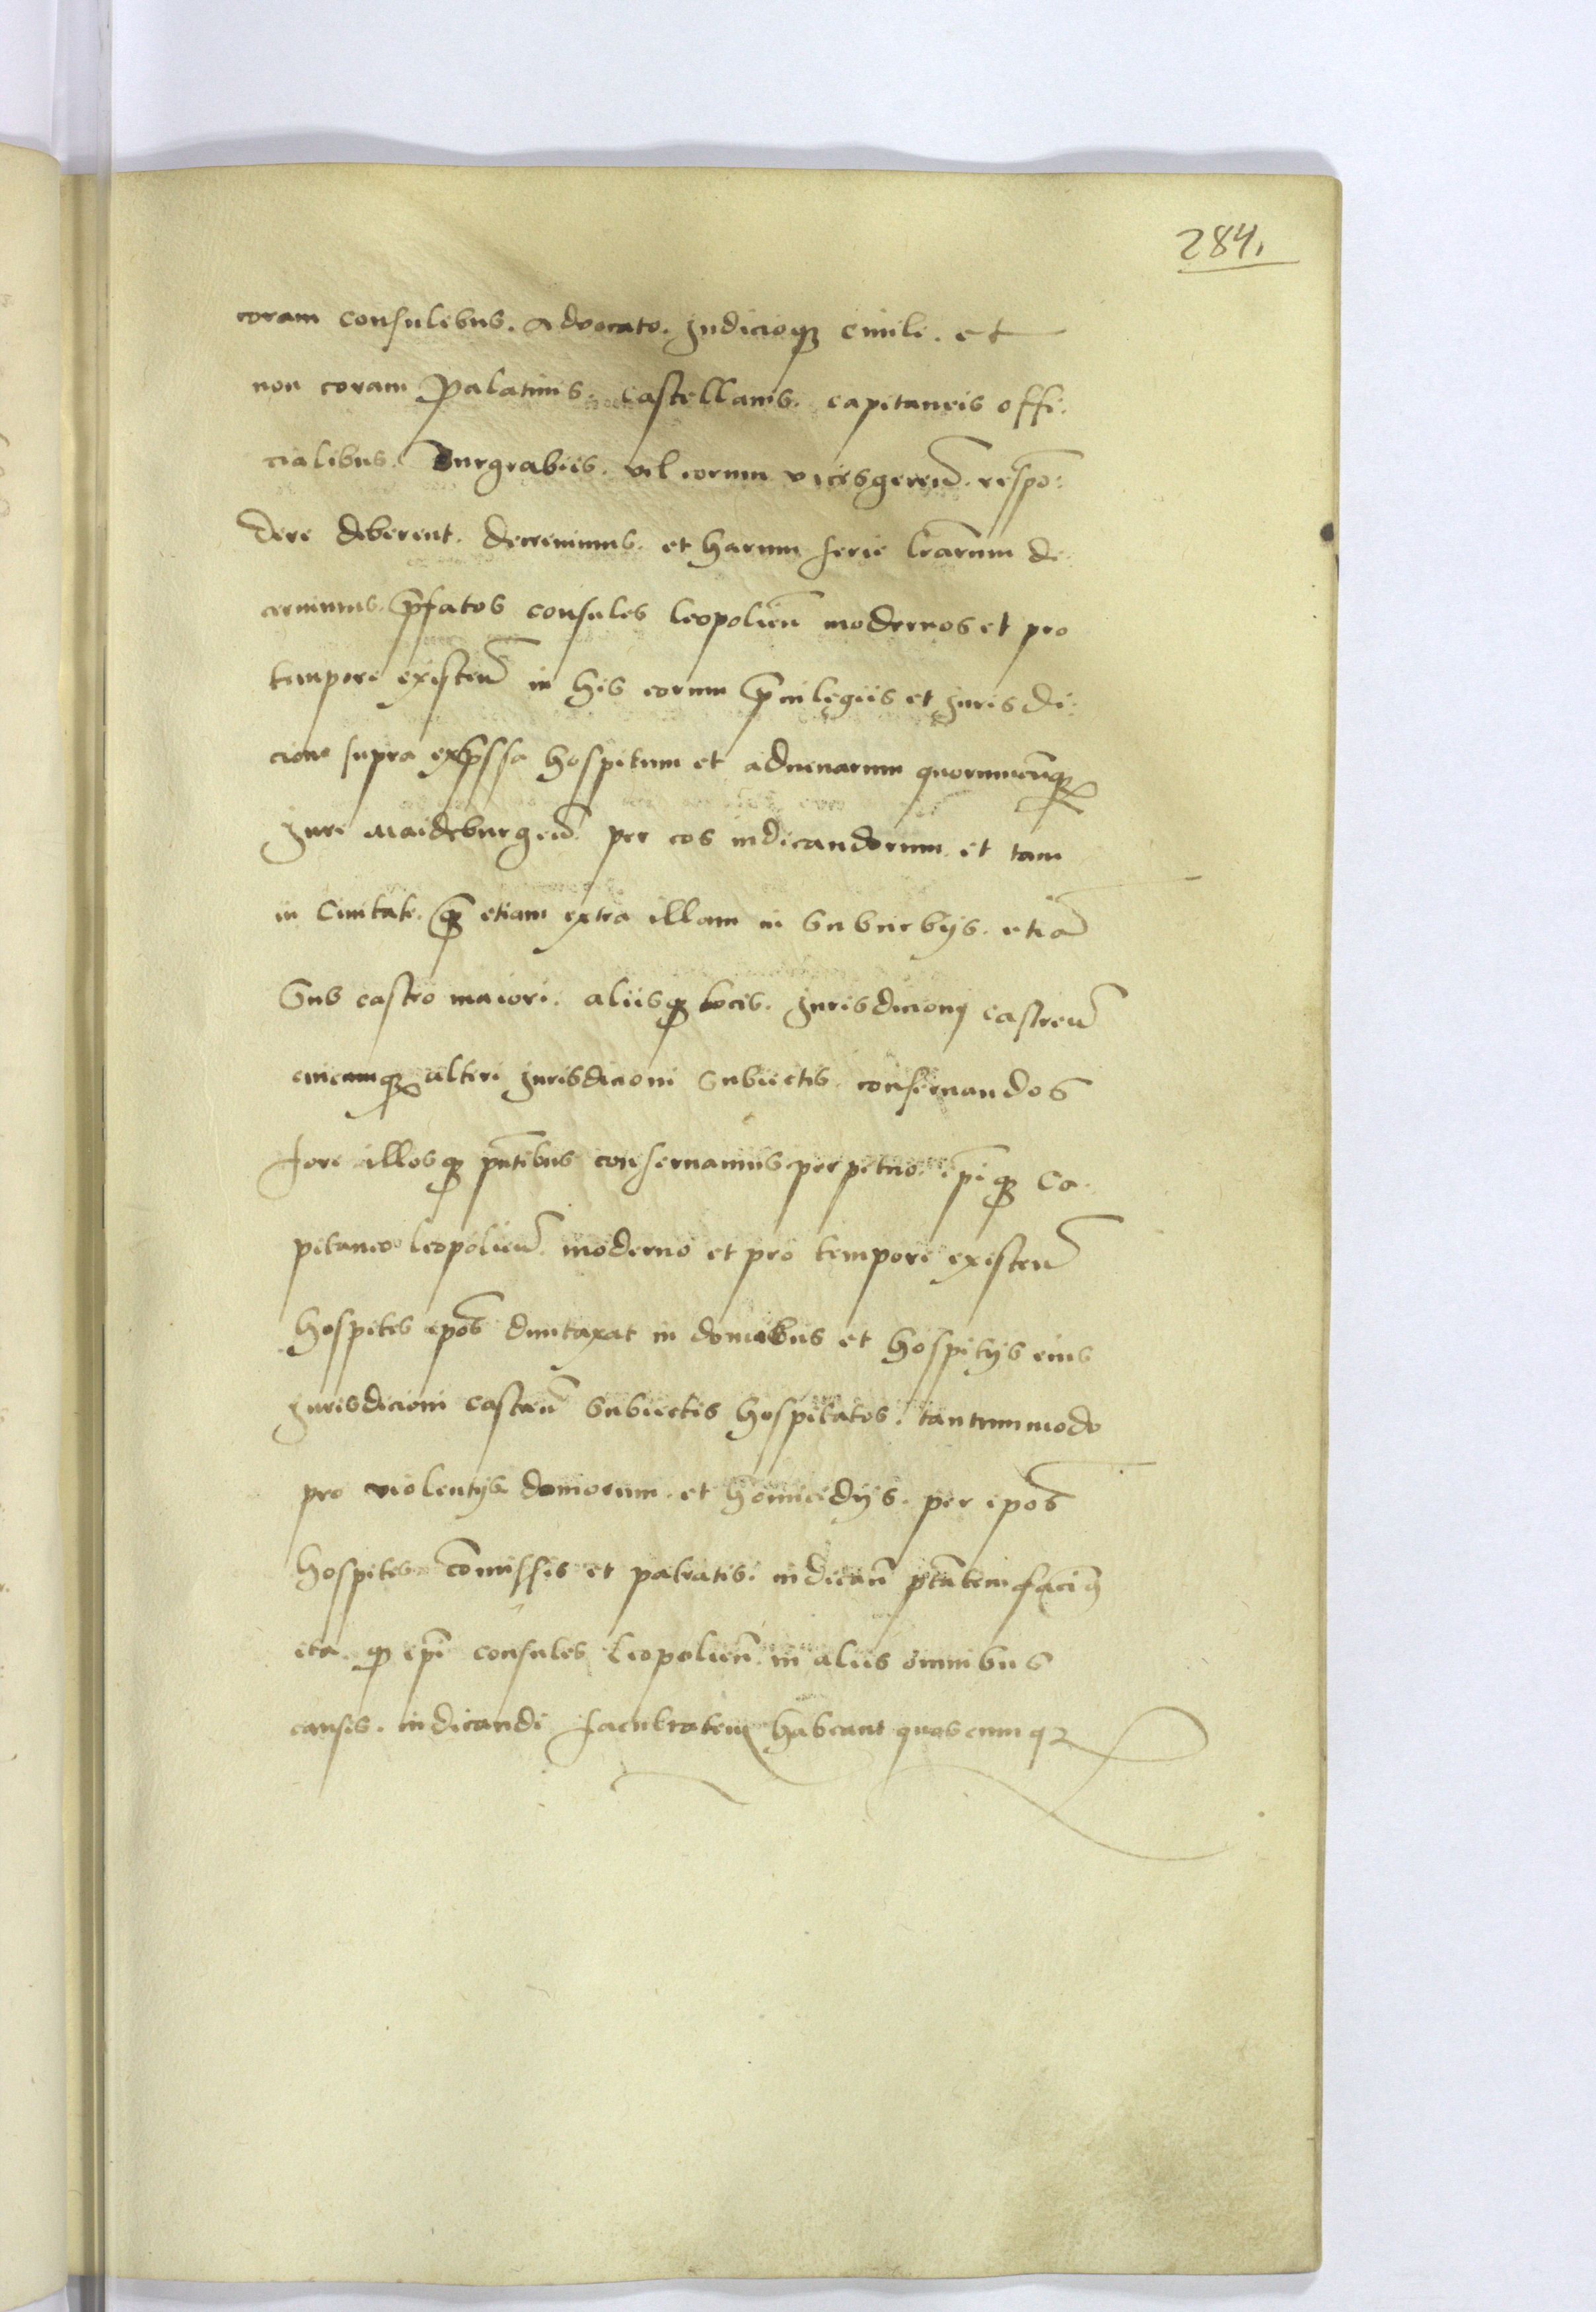 284.
coram consulibus. advocato. Judicioq3 ciuili. et
non coram Palatinis. castellanis. capitaneis offi:
cialibus. Burgrabiis. vel eorum vicesgereñ. respō:
dere deberent. decreuimus. et harum serie lr̄arum de:
cernimus. p̄fatos consules leopolieñ modernos et pro
tempore existeñ in his eorum p̄uilegiis et Jurisdi:
cione supra exp̄ssa hospitum et aduenarum quorumcūq3
Jure Maideburgeñ. per eos iudicandorum. et tam
in Ciuitate. q̄3 etiam extra illam in suburbijs. etiā
Sub castro maiori. aliisq3 locis. Jurisdicioni castreñ
cuicumq3 alteri Jurisdicioni subiectis. conseruandos
fore illosq3 pn̄tibus conseruamus perpetuo. ip̄iq3 Ca:
pitaneo leopolieñ. moderno et pro tempore existeñ
hospites ip̄os duntaxat in domibus et hospitijs eius
Jurisdicioni castreñ subiectis hospitatos. tantummodo
pro violentijs domorum. et homicidijs. per ip̄os
hospites com̄issis et patratis. iudicañ p̄tātem faciēs
ita. q3 ip̄i consules Leopolieñ. in aliis omnibus
causis. iudicandi facultatem habeant quoscumq3